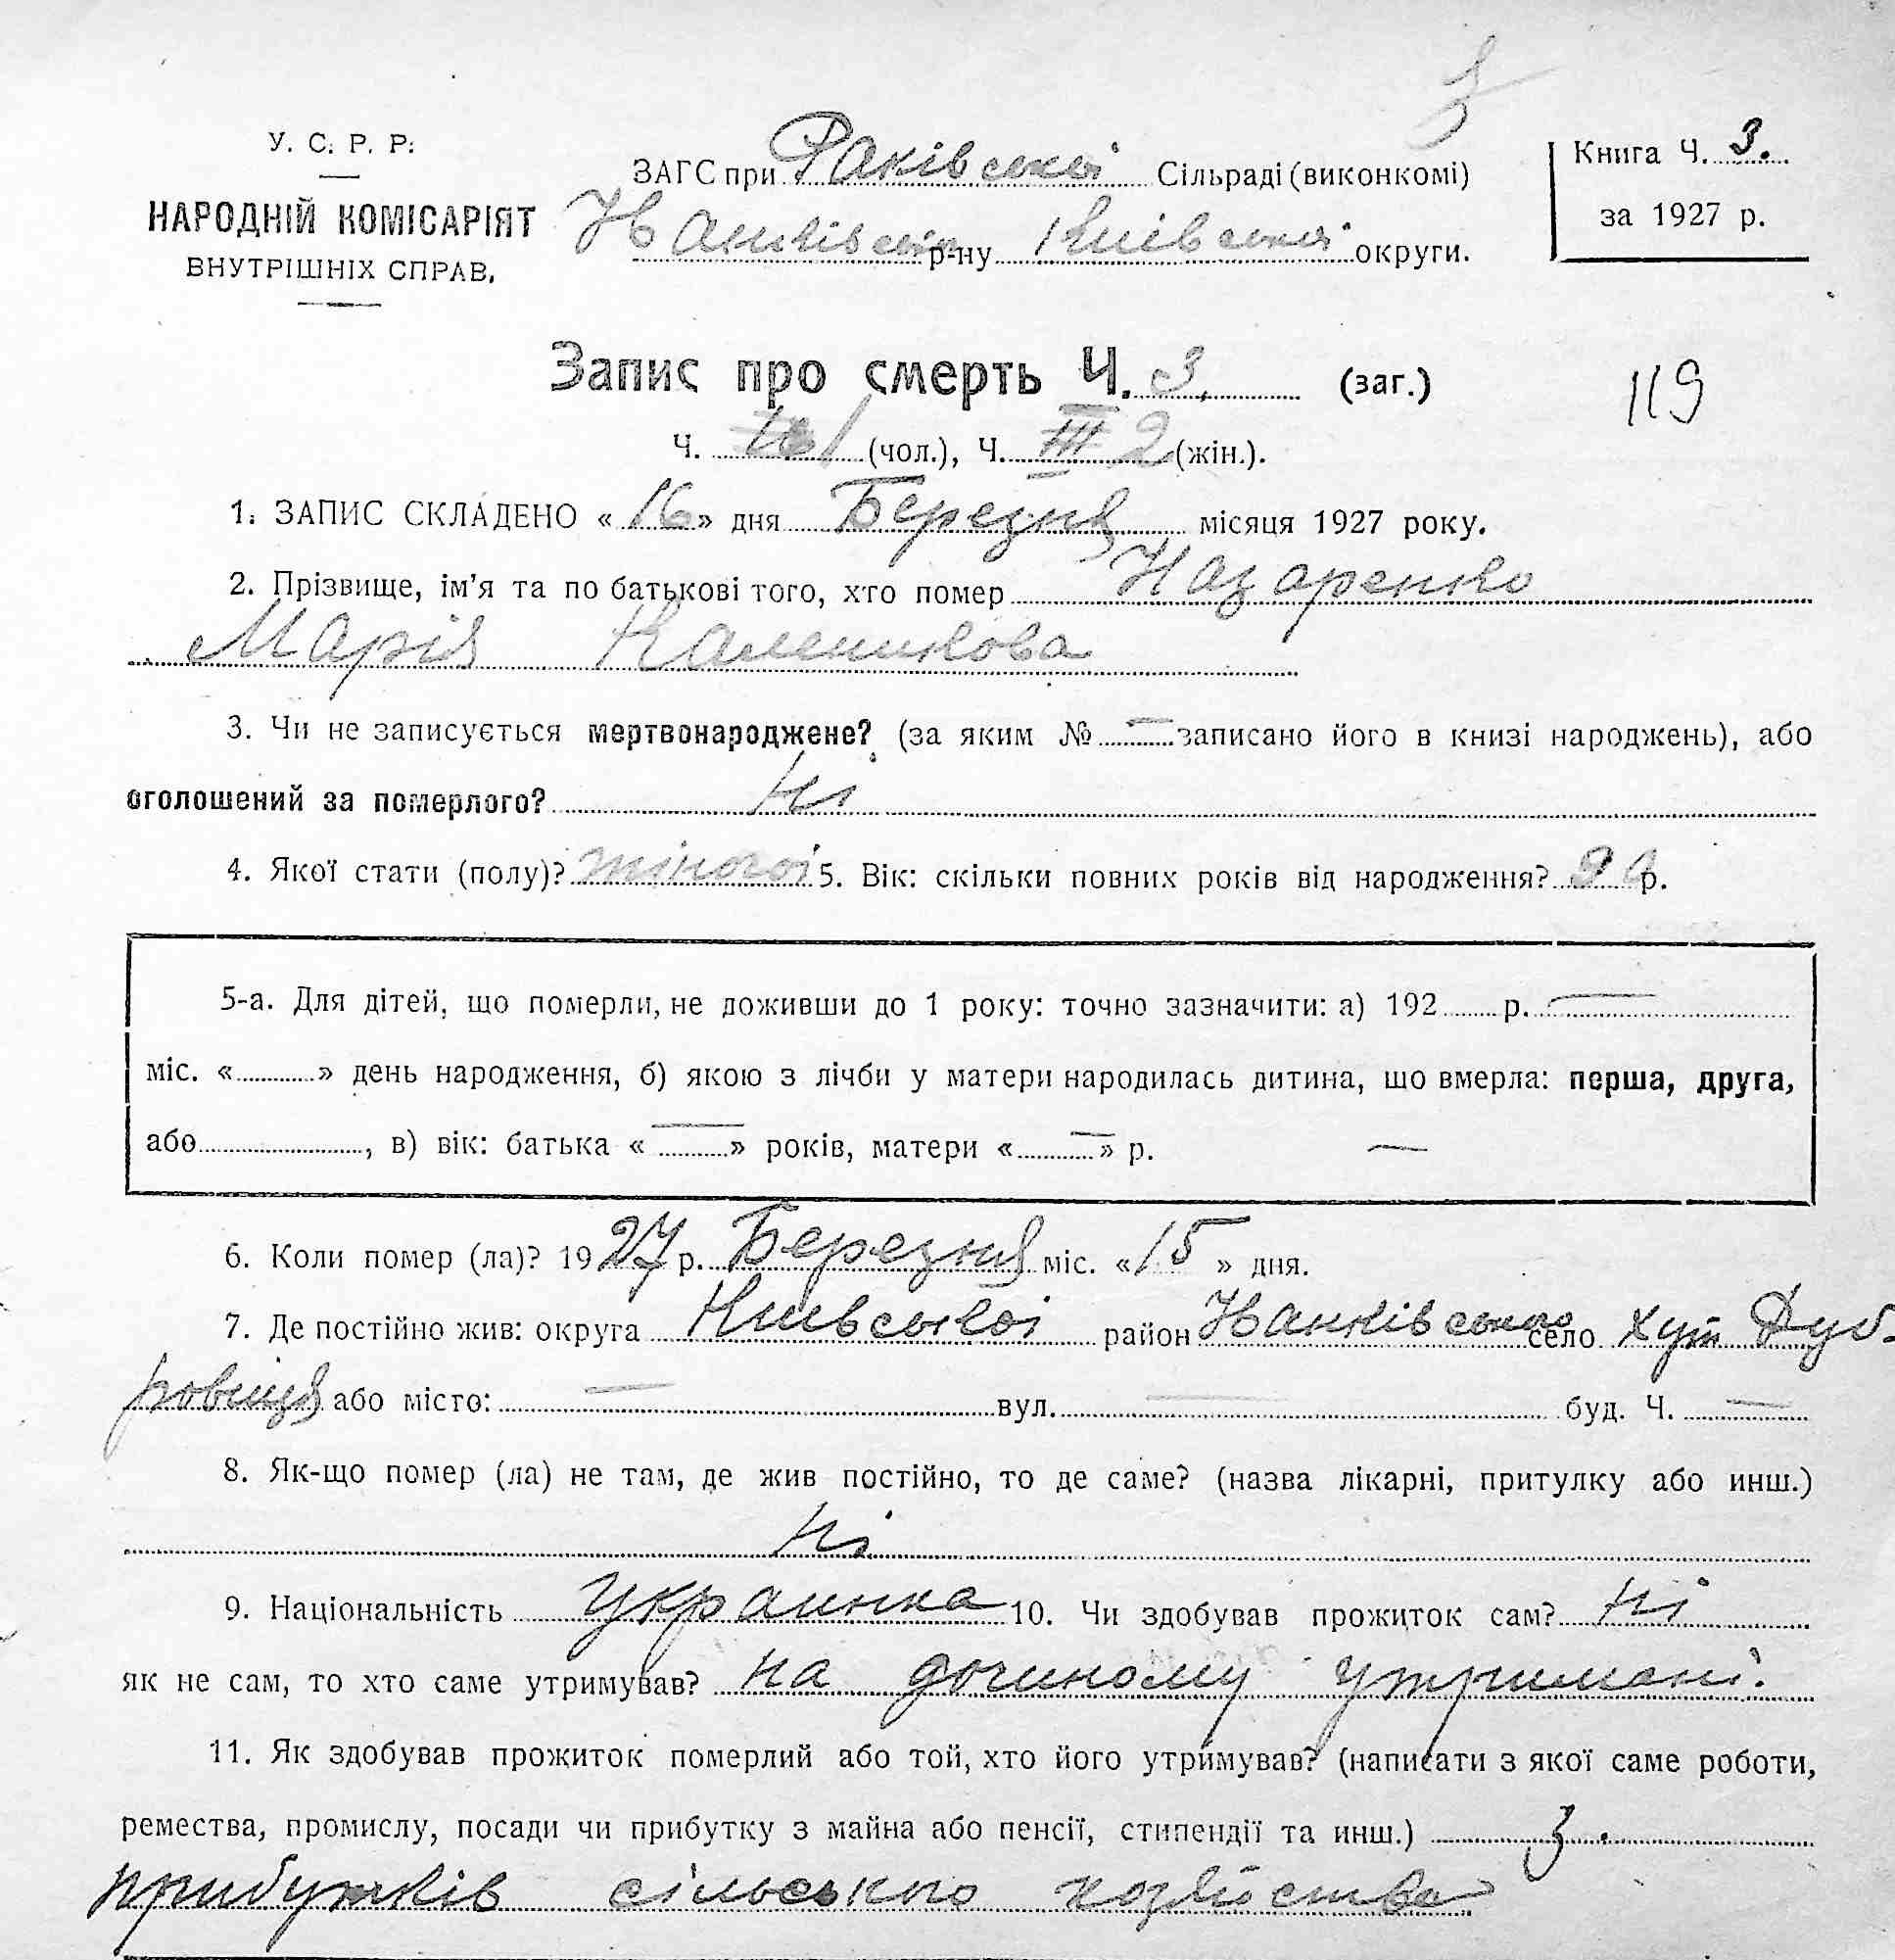 3
У. С. Р. Р.
НАРОДНІЙ КОМІСАРІЯТ
ВНУТРІШНІХ СПРАВ.
ЗАГС при Раківської Сільраді (виконкомі)
р-ну Київської округи.
Книга Ч. 3.
за 1927 р.
Запис про смерть Ч. 3, (заг.)
119
Ч. 1 (чол.), Ч. III 2 (жін.).
1. ЗАПИС СКЛАДЕНО « 16 » дня Березня місяця 1927 року.
2. Прізвище, ім'я та по батькові того, хто помер Назаренко
Марія Каленикова
3. Чи не записується мертвонароджене? (за яким № — записано його в книзі народжень), або
оголошений за померлого? Ні
4. Якої стати (полу)? жіночої 5. Вік: скільки повних років від народження? 90 р.
5-а. Для дітей, що померли, не доживши до 1 року: точно зазначити: а) 192 р. —
міс. « » день народження, б) якою з лічби у матери народилась дитина, що вмерла: перша, друга,
або , в) вік: батька « — » років, матери « — » р. —
6. Коли помер (ла)? 1927 р. Березня міс. « 15 » дня.
7. Де постійно жив: округа Київської район село хут Дуб-
ровиця або місто: — вул. — буд. Ч. —
8. Як-що помер (ла) не там, де жив постійно, то де саме? (назва лікарні, притулку або инш.)
Ні
9. Національність Украинка 10. Чи здобував прожиток сам? Ні
як не сам, то хто саме утримував? На дочиному утримані.
11. Як здобував прожиток померлий або той, хто його утримував? (написати з якої саме роботи,
ремества, промислу, посади чи прибутку з майна або пенсії, стипендії та инш.) З
прибутків сільського хозяйства